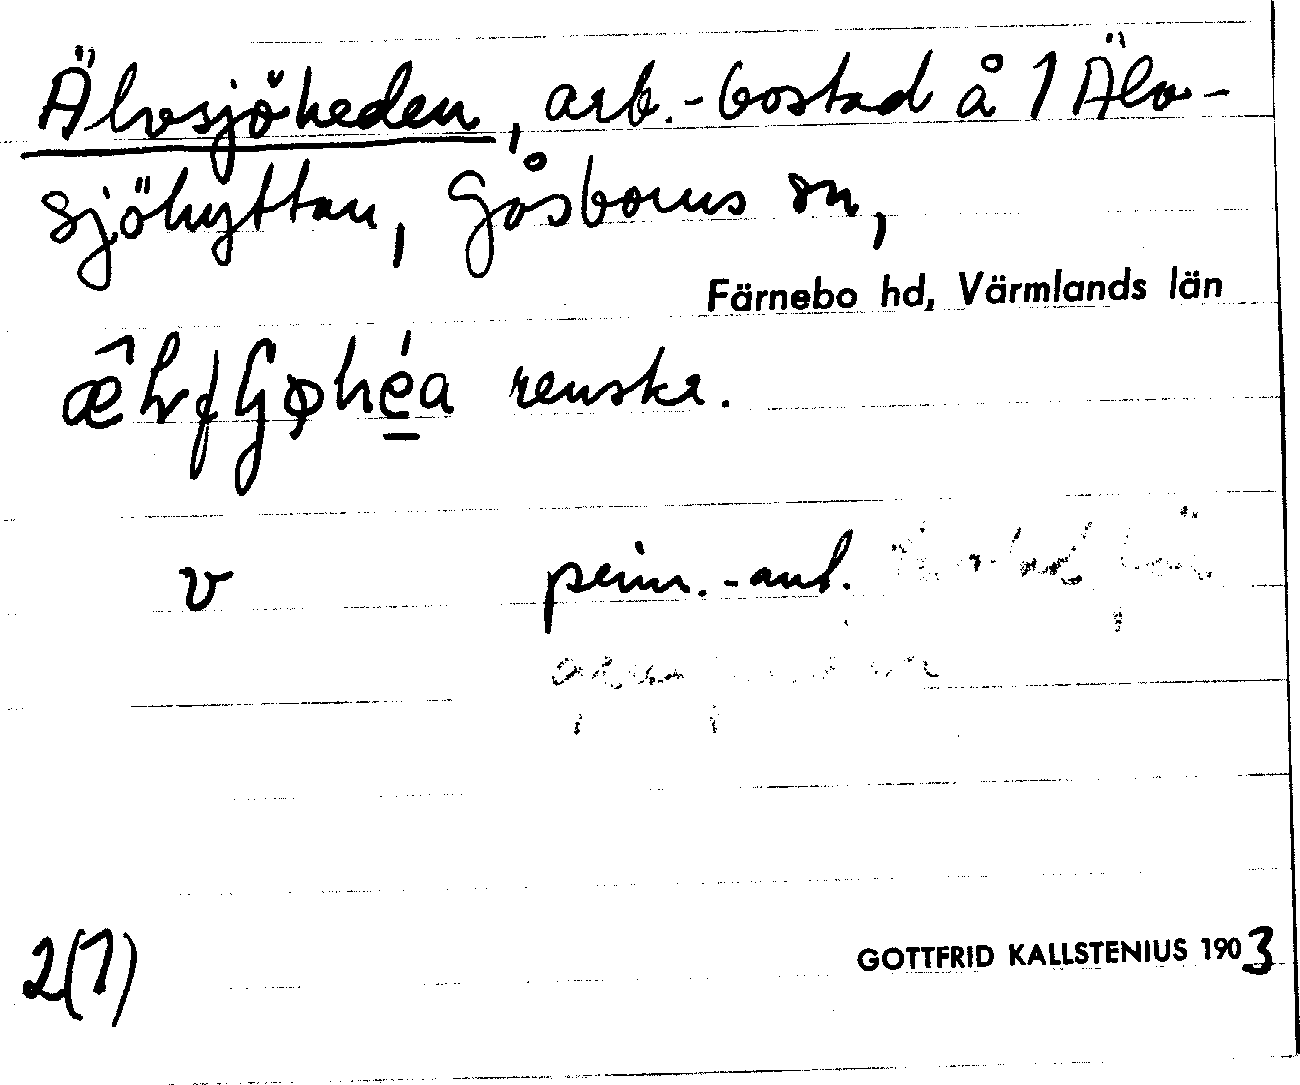 Älvsjöheden, arb.-bostad å 1 Älv-
sjöhyttan, Gåsborns sn,
Färnebo hd, Värmlands län
renskr.
v prim.-ant.
2(1) GOTTFRID KALLSTENIUS 1903